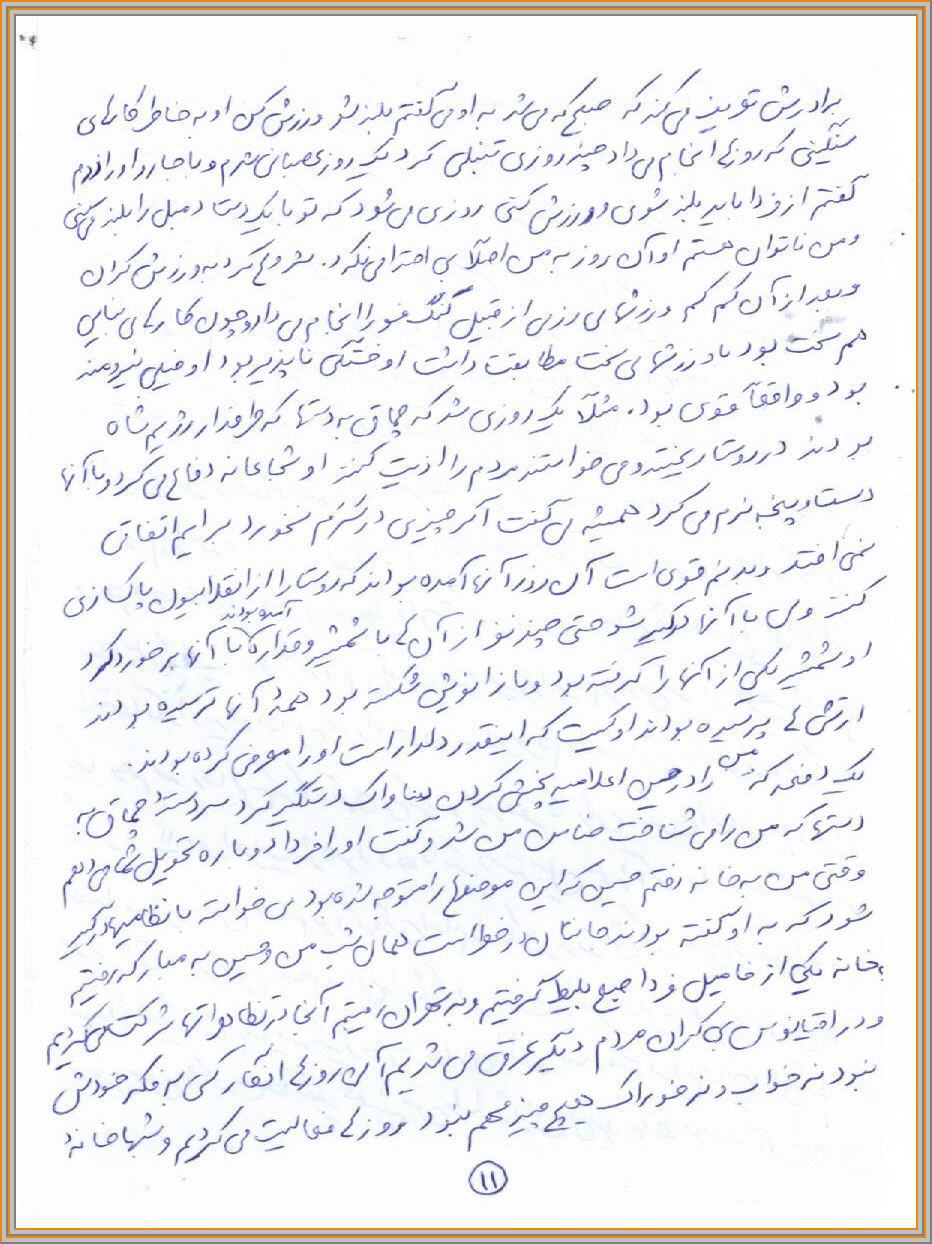 برادرش تعریف می کند که صبح که می شد به او می گفتم بلند شو ورزش کن او به خاطر کارهای
سنگینی که روزها انجام می داد چند روزی تنبلی کرد یک روز عصبانی شدم و با جارو او را زدم
گفتم از فردا باید بلند شوی و ورزش کنی روزی می شود که تو با یک دستت دمبل را بلند می کنی
و من ناتوان هستم او آن روز به من اصلاً بی احترامی نکرد. شروع کرد به ورزش کردن
و بعد از آن کم کم ورزشهای رزمی از قبیل گنگ فو را انجام می داد و چون کارهای بنایی
هم سخت بود با ورزشهای سخت مطابقت داشت او خستگی ناپذیر بود او خیلی نیرومند
بود و واقعاً قوی بود. مثلاً یک روزی شد که چماق به دستها که طرفدار رژیم شاه
بودند در روستا ریختند و می خواستند مردم را اذیت کنند او شجاعانه دفاع می کرد و با آنها
دست و پنجه نرم می کرد همیشه می گفت اگر چیزی در سرم نخورد برایم اتفاقی
نمی افتد و بدنم قوی است آن روز آنها آمده بودند که روستا را از انقلابیون پاکسازی
کنند ولی با آنها درگیر شد حتی چند نفر از آن ها با شمشیر و قداره آمده بودند با آنها برخورد کرد
او شمشیر یکی از آنها را گرفته بود و با زانویش شکسته بود همۀ آنها ترسیده بودند
ارتشی ها پرسیده بودند او کیست که اینقدر دلدار است او را معرفی کرده بودند.
یک دفعه که من را در حین اعلامیه پخش کردن ساواک دستگیر کرد سردستۀ چماق به
دستها که من را می شناخت ضامن من شد و گفت او را فردا دوباره تحویل شما می دهم
وقتی من به خانه رفتم حسین که این موضوع را متوجه شده بود می خواست با نظامیها درگیر
شود که به او گفته بودند جانتان در خطر است همان شب من و حسین به مبارکه رفتیم
خانه یکی از فامیل فردا صبح بلیط گرفتیم و به تهران رفتیم آنجا در تظاهراتها شرکت می کردیم
و در اقیانوس بی کران مردم دیگر غرق می شدیم آن روزها انگار کسی به فکر خودش
نبود نه خواب و نه خوراک هیچ چیز مهم نبود روزها فعالیت می کردیم و شبها خانۀ
۱۱